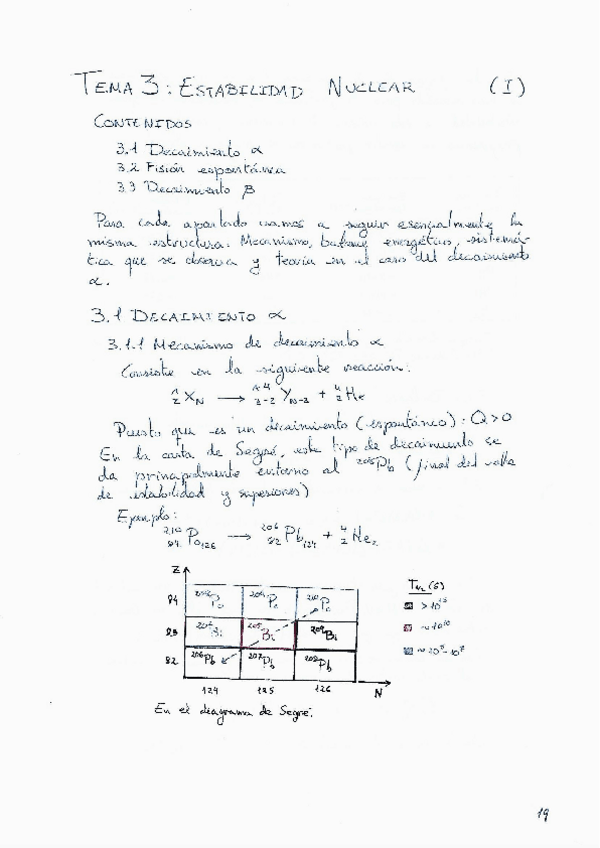 TEMA 3: ESTABILIDAD NUCLEAR (I)
CONTENIDOS
3.1 Decaimiento α
3.2 Fisión espontánea
3.3 Decaimiento β
Para cada apartado vamos a seguir esencialmente la
misma estructura: Mecanismo, balance energético, sistemá-
tica que se observa y teoría en el caso del decaimiento
α.
3.1 DECAIMIENTO α
3.1.1 Mecanismo de decaimiento α
Consiste en la siguiente reacción:
ᴬ_Z X_N ⟶ ᴬ⁻⁴_Z-2 Y_N-2 + ⁴₂He
Puesto que es un decaimiento (espontáneo): Q>0
En la carta de Segré, este tipo de decaimiento se
da principalmente entorno al Pb (final del valle
de estabilidad y superiores)
Ejemplo:
²¹⁰₈₄Po₁₂₆ ⟶ ²⁰⁶₈₂Pb₁₂₄ + ⁴₂He₂
Z T₁/₂ (s)
84 Po Po ²¹⁰Po > 10¹⁵
83 Bi Bi ²⁰⁹Bi ~ 10¹⁰
82 ²⁰⁶Pb ²⁰⁷Pb ²⁰⁸Pb
124 125 126 N
En el diagrama de Segré.
19